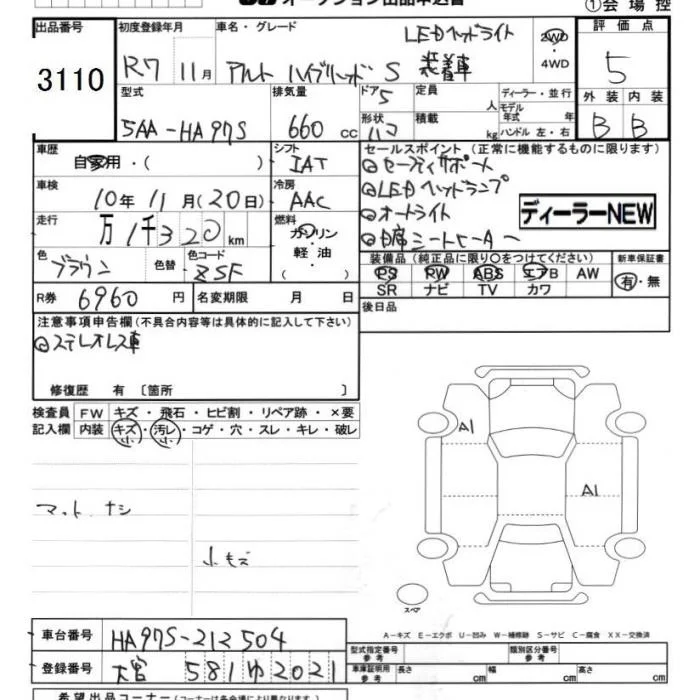 ①会場控
出品番号 初度登録年月 車名・グレード LEDヘッドライト 2WD 評価点
3110 R7 11月 アルト ハイブリッド S 装着車 ・4WD 5
型式 排気量 ドア5 定員 人 ディーラー・並行 外装 内装
5AA-HA97S 660cc 形状 積載 kg モデル年式 年 ハンドル 左・右 B B
車歴 自家用・( ) シフト IAT セールスポイント (正常に機能するものに限ります)
◎セーフティサポート
車検 10年11月(20日) 冷房 AAC ◎LEDヘッドランプ
走行 万1千320km 燃料 ガソリン・軽油・( ) ◎オートライト ディーラーNEW
色 ブラウン 色替 色コード ZSF ◎ 席シートヒーター
装備品 (純正品に限り○をつけてください) 新車保証書
PS PW ABS エアB AW 有・無
SR ナビ TV カワ
R券 6960円 名変期限 月 日 後日品
注意事項申告欄(不具合内容等は具体的に記入して下さい)
◎ステレオレス車
修復歴 有 〔箇所 〕
検査員 FW キズ・飛石・ヒビ割・リペア跡・×要
記入欄 内装 キズ・汚レ・コゲ・穴・スレ・キレ・破レ
小 小
A1
A1
マット ナシ
小キズ
スペア
A-キズ E-エクボ U-凹み W-補修跡 S-サビ C-腐食 XX-交換済
車台番号 HA97S-212504 型式指定番号 参考 類別区分番号 参考
登録番号 大宮 581ゆ2021 車庫証明用 参考 長さ cm 幅 cm 高さ cm
希望出品コーナー(コーナーは各会場により異なります。)